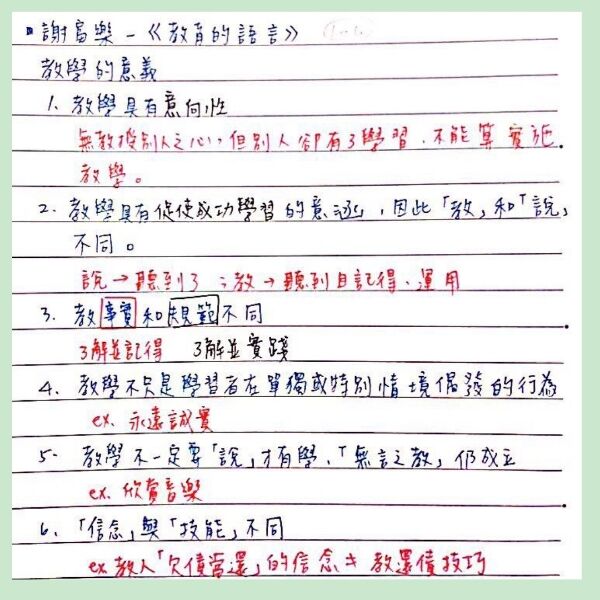 謝富樂-《教育的語言》
教學的意義
1. 教學具有意向性
無教授別人之心,但別人卻有了學習,不能算實施
教學。
2. 教學具有促使成功學習的意涵,因此「教」和「說」
不同。
說→聽到了；教→聽到且記得、運用
3. 教事實和規範不同
了解並記得 了解並實踐
4. 教學不只是學習者在單獨或特別情境偶發的行為
ex. 永遠誠實
5. 教學不一定要「說」才有學,「無言之教」仍成立
ex. 欣賞音樂
6. 「信念」與「技能」不同
ex 教人「欠債當還」的信念≠教還債技巧